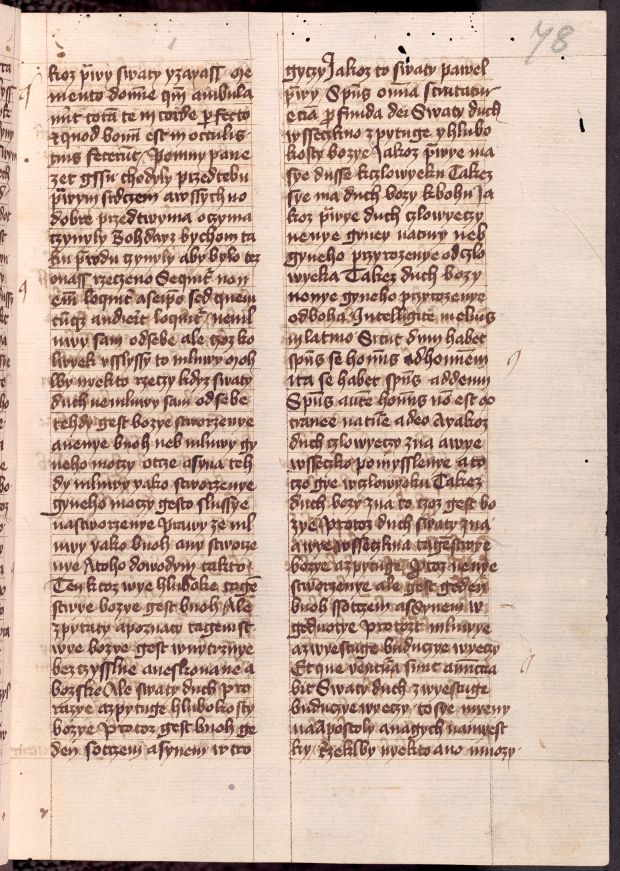 78
kroz prwy swaty yzayass Me
mento domine qm ambula
tcius fecerut Pomny pane
zet gssu chodyly przedtebu
prwym srdczem awssych no
dobre przedtwyma oczyma
czynyly Bohdayz bychom ta
ku prwdu czynyly aby bylo terz
onass rzeczeno Sequit non
em loquit aseipo sed quem
cuqz audiet loquit neml
uwy sam odsebe ale czoz ko
lywyek vslyssy to mluwy Moh
lby nyekto rzeczy kdyz swaty
duch nemluwy sam odsebe
tehdy gest bozye stworzenye
anenye buoh neb mluwy gy
neho moczy otcze asyna teh
dy mluwy yako stworzenye
gyneho moczy gesto slussye
nastworzenye Prawy ze ml
uwy yako buoh any stworze
nye Atoho dowodym takto
Ten ktoz wye hluboke tage
stwye bozye gest buoh Ale
zpytaty apoznaty tagemst
wye bozye gest wnytrznye
bezczysslne aneskonane a
bozske Ale swaty duch pro
razye azpytuge hlubokosty
bozye Protoz gest buoh ge
den sotczem asynem wtro
gyczy Jakoz to swaty pawel
prwy Spus omnia scrutatur
ecia pfunda dei Swaty duch
wsseczkno zpytuge yhlubo
kosty bozye Jakoz prwye ma
sye dusse kczlowyeku Takez
sye ma duch bozy kbohu Ja
koz prwye duch czlowyeczy
nenye gyney natury neb
gyneho przyrozenye odczlo
wyeka Takez duch bozy
nenye gyneho przyrozenye
odboha Intelligite melius
inlatino Sicut enim habet
spus se hominis adhominem
ita se habet spus addeum
Spus aute hominis no est ex
tranee nature adeo Ayakoz
duch czlowyeczy zna awye
wsseczko pomysslenye ato
czo gye wczlowyeku Takez
duch bozy zna to czoz gest bo
zye Protoz duch swaty zna
awye wsseczkna tagestwye
bozye azpytuge Protoz nenye
stworzenye ale gest geden
buoh sotczem assynem w
gednotye Protozt mluwye
azwyestuge buducze wyeczy
Et que ventura sunt annuncia
bit Swaty duch zwyestuge
buducze wyeczy tosye myeny
naapostoly anagych namyest
ky Rzeklby nyekto ano mnozy